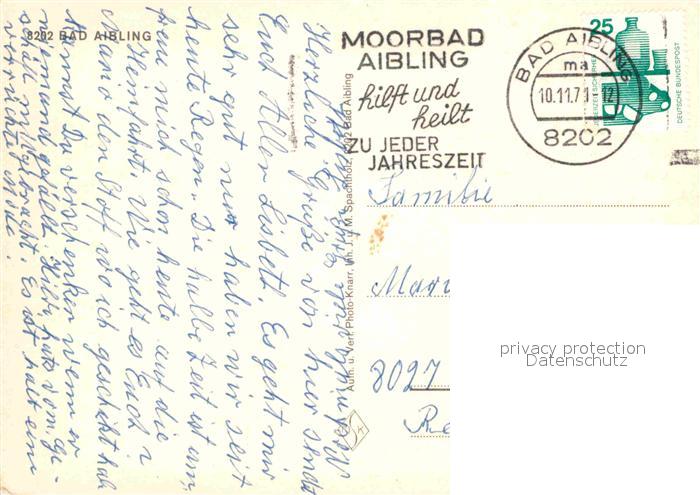 8202 BAD AIBLING
MOORBAD
AIBLING
hilft und
heilt
ZU JEDER
JAHRESZEIT
BAD AIBLING
ma
10.11.7
12
8202
25
JEDERZEIT SICHERHEIT
DEUTSCHE BUNDESPOST
Herzliche Grüße von hier sendet
Euch Allen Lisbeth. Es geht mir
sehr gut nur haben wir seit
heute Regen. Die halbe Zeit ist um,
freue mich schon heute auf die
Heimfahrt. Wie geht es Euch?
Mario den Stoff wo ich geschickt hab
kannst Du verschenken wenn er
niemand gefällt. Hilde hats vom Ge-
schäft mitgebracht. Es ist halt eine
verrückte Mode.
Aufn. u. Verl. Photo-Knarr, Inh. J. u. M. Spachtholz, 8202 Bad Aibling
Familie
Mari
8027
Re
privacy protection
Datenschutz